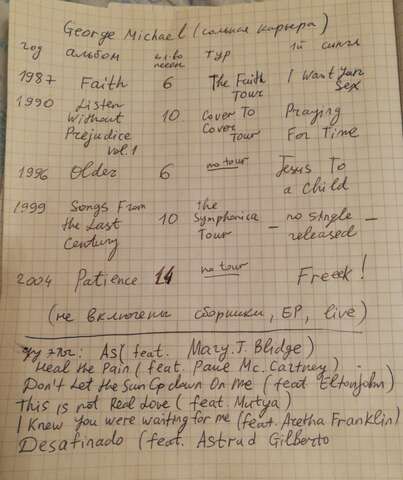 George Michael (сольная карьера)
год альбом кол-во песен тур 1й сингл
1987 Faith 6 The Faith Tour I Want Your Sex
1990 Listen Without Prejudice vol.1 10 Cover To Cover Tour Praying For Time
1996 Older 6 no tour Jesus To a Child
1999 Songs From the Last Century 10 the Symphonica Tour – no single released –
2004 Patience 14 no tour Freeek!
(не включены сборники, БР, live)
Дуэты: As (feat. Mary.J. Blidge)
Heal the Pain (feat. Paul Mc.Cartney)
Don't Let the Sun Go down On me (feat Elton john)
This is not Real Love (feat. Mutya)
I Knew you were waiting for me (feat. Aretha Franklin)
Desafinado (feat. Astrud Gilberto